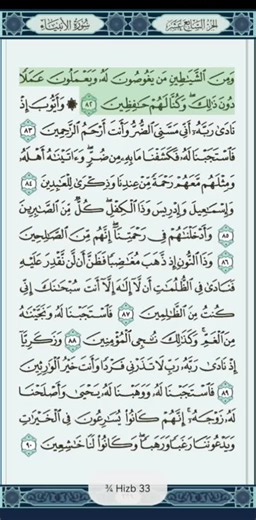 الجزء السابع عشر
سورة الأنبياء
وَمِنَ ٱلشَّيَٰطِينِ مَن يَغُوصُونَ لَهُۥ وَيَعْمَلُونَ عَمَلًا
دُونَ ذَٰلِكَ ۖ وَكُنَّا لَهُمْ حَٰفِظِينَ ٨٢ ۞ وَأَيُّوبَ إِذْ
نَادَىٰ رَبَّهُۥٓ أَنِّى مَسَّنِىَ ٱلضُّرُّ وَأَنتَ أَرْحَمُ ٱلرَّٰحِمِينَ ٨٣
فَٱسْتَجَبْنَا لَهُۥ فَكَشَفْنَا مَا بِهِۦ مِن ضُرٍّ ۖ وَءَاتَيْنَٰهُ أَهْلَهُۥ
وَمِثْلَهُم مَّعَهُمْ رَحْمَةً مِّنْ عِندِنَا وَذِكْرَىٰ لِلْعَٰبِدِينَ ٨٤
وَإِسْمَٰعِيلَ وَإِدْرِيسَ وَذَا ٱلْكِفْلِ ۖ كُلٌّ مِّنَ ٱلصَّٰبِرِينَ
٨٥ وَأَدْخَلْنَٰهُمْ فِى رَحْمَتِنَآ ۖ إِنَّهُم مِّنَ ٱلصَّٰلِحِينَ
٨٦ وَذَا ٱلنُّونِ إِذ ذَّهَبَ مُغَٰضِبًا فَظَنَّ أَن لَّن نَّقْدِرَ عَلَيْهِ
فَنَادَىٰ فِى ٱلظُّلُمَٰتِ أَن لَّآ إِلَٰهَ إِلَّآ أَنتَ سُبْحَٰنَكَ إِنِّى
كُنتُ مِنَ ٱلظَّٰلِمِينَ ٨٧ فَٱسْتَجَبْنَا لَهُۥ وَنَجَّيْنَٰهُ
مِنَ ٱلْغَمِّ ۚ وَكَذَٰلِكَ نُۨجِى ٱلْمُؤْمِنِينَ ٨٨ وَزَكَرِيَّآ
إِذْ نَادَىٰ رَبَّهُۥ رَبِّ لَا تَذَرْنِى فَرْدًا وَأَنتَ خَيْرُ ٱلْوَٰرِثِينَ
٨٩ فَٱسْتَجَبْنَا لَهُۥ وَوَهَبْنَا لَهُۥ يَحْيَىٰ وَأَصْلَحْنَا
لَهُۥ زَوْجَهُۥٓ ۚ إِنَّهُمْ كَانُوا۟ يُسَٰرِعُونَ فِى ٱلْخَيْرَٰتِ
وَيَدْعُونَنَا رَغَبًا وَرَهَبًا ۖ وَكَانُوا۟ لَنَا خَٰشِعِينَ ٩٠
¾ Hizb 33